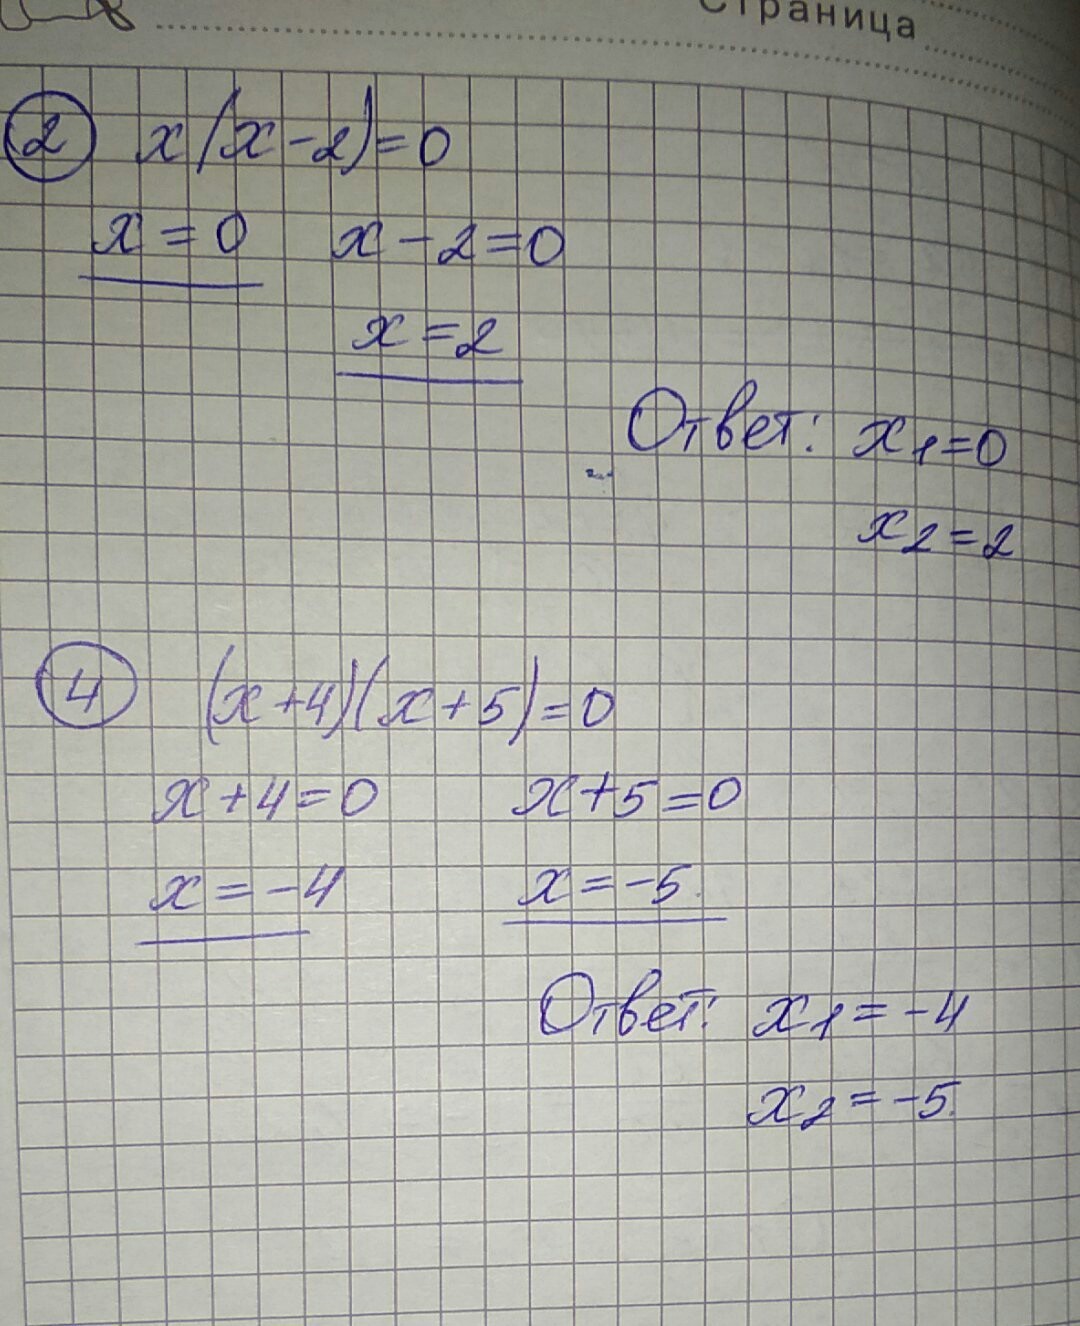 Страница
2 x(x-2)=0
x=0 x-2=0
x=2
Ответ: x1=0
x2=2
4 (x+4)(x+5)=0
x+4=0 x+5=0
x=-4 x=-5.
Ответ: x1=-4
x2=-5.